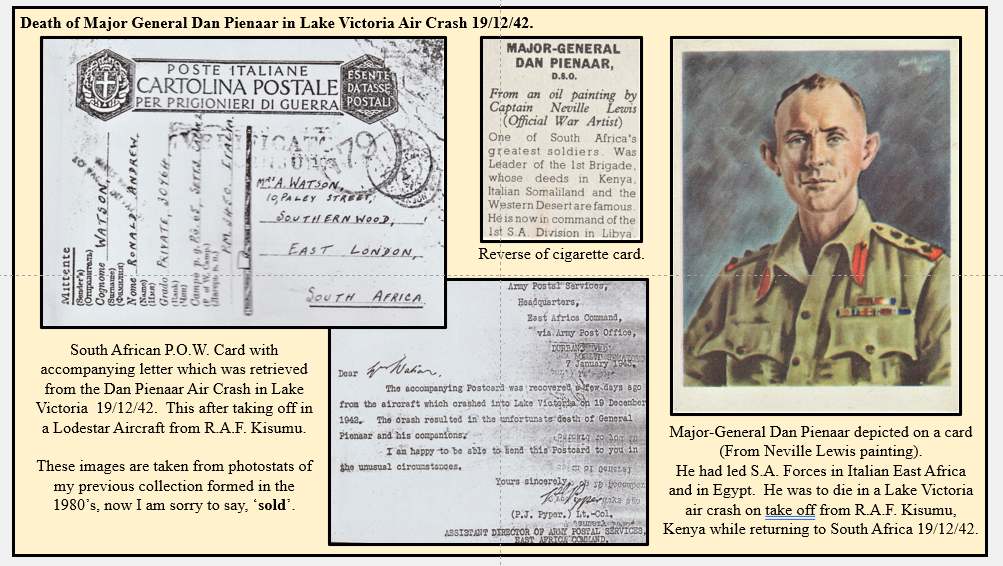 Death of Major General Dan Pienaar in Lake Victoria Air Crash 19/12/42.
POSTE ITALIANE
CARTOLINA POSTALE
PER PRIGIONIERI DI GUERRA
ESENTE
DA TASSE
POSTALI
79
MRS A. WATSON,
10, PALEY STREET,
SOUTHERNWOOD,
EAST LONDON,
SOUTH AFRICA.
Mittente
(Sender's)
(Отправитель)
Cognome WATSON,
(Surname)
(Фамилия)
Nome RONALD ANDREW.
(Name)
(Имя)
Grado PRIVATE, 30764
(Rank)
(Чин)
Campo p. g. P.G. 65,
(P. of W. Camp)
P.M. 3450. ITALIA
MAJOR-GENERAL
DAN PIENAAR,
D.S.O.
From an oil painting by
Captain Neville Lewis
(Official War Artist)
One of South Africa's
greatest soldiers. Was
Leader of the 1st Brigade,
whose deeds in Kenya,
Italian Somaliland and the
Western Desert are famous.
He is now in command of the
1st S.A. Division in Libya.
Reverse of cigarette card.
Army Postal Services,
Headquarters,
East Africa Command,
via Army Post Office,
DURBAN.
7 January 1943.
Dear
The accompanying Postcard was recovered a few days ago
from the aircraft which crashed into Lake Victoria on 19 December
1942. The crash resulted in the unfortunate death of General
Pienaar and his companions.
I am happy to be able to send this Postcard to you in
the unusual circumstances.
Yours sincerely,
(P.J. Pyper.) Lt.-Col.
ASSISTANT DIRECTOR OF ARMY POSTAL SERVICES,
EAST AFRICA COMMAND.
South African P.O.W. Card with
accompanying letter which was retrieved
from the Dan Pienaar Air Crash in Lake
Victoria 19/12/42. This after taking off in
a Lodestar Aircraft from R.A.F. Kisumu.
These images are taken from photostats of
my previous collection formed in the
1980's, now I am sorry to say, 'sold'.
Major-General Dan Pienaar depicted on a card
(From Neville Lewis painting).
He had led S.A. Forces in Italian East Africa
and in Egypt. He was to die in a Lake Victoria
air crash on take off from R.A.F. Kisumu,
Kenya while returning to South Africa 19/12/42.